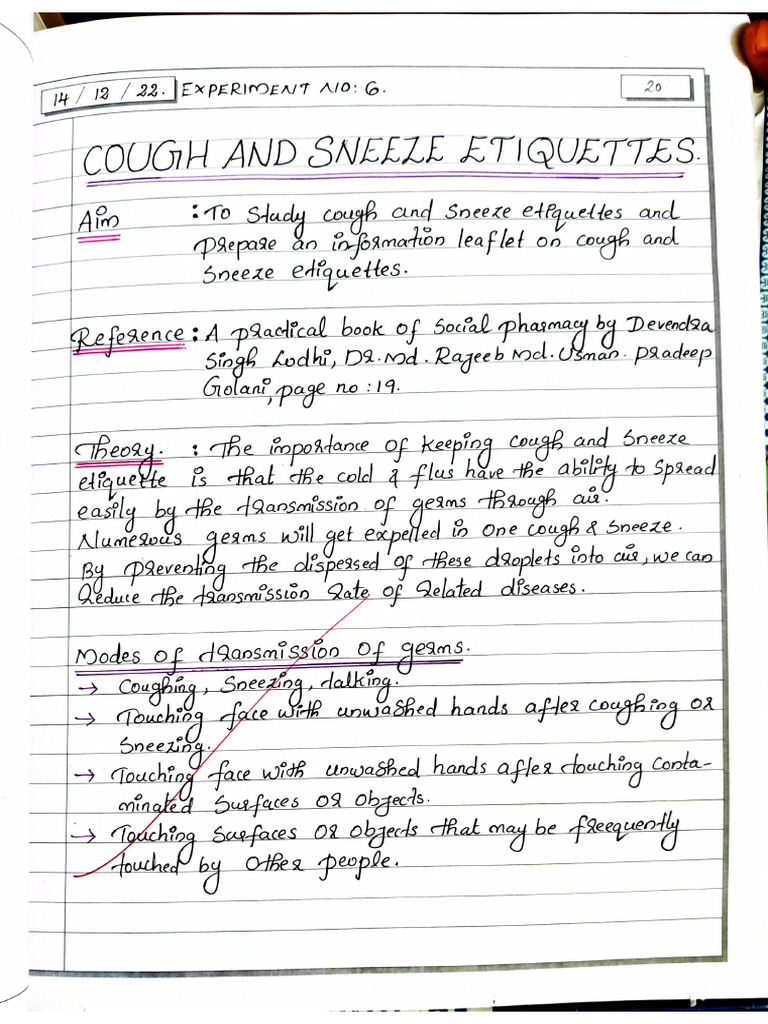 14 / 12 / 22. EXPERIMENT NO: 6. 20
COUGH AND SNEEZE ETIQUETTES.
Aim : To study cough and sneeze etiquettes and
prepare an information leaflet on cough and
sneeze etiquettes.
Reference : A practical book of social pharmacy by Devendra
Singh Lodhi, Dr. Md. Rageeb Md. Usman. Pradeep
Golani, page no : 19.
Theory. : The importance of keeping cough and sneeze
etiquette is that the cold & flus have the ability to spread
easily by the transmission of germs through air.
Numerous germs will get expelled in one cough & sneeze.
By preventing the dispersed of these droplets into air, we can
reduce the transmission rate of related diseases.
Modes of transmission of germs.
→ Coughing, Sneezing, talking.
→ Touching face with unwashed hands after coughing or
sneezing.
→ Touching face with unwashed hands after touching conta-
minated surfaces or objects.
→ Touching surfaces or objects that may be freequently
touched by other people.